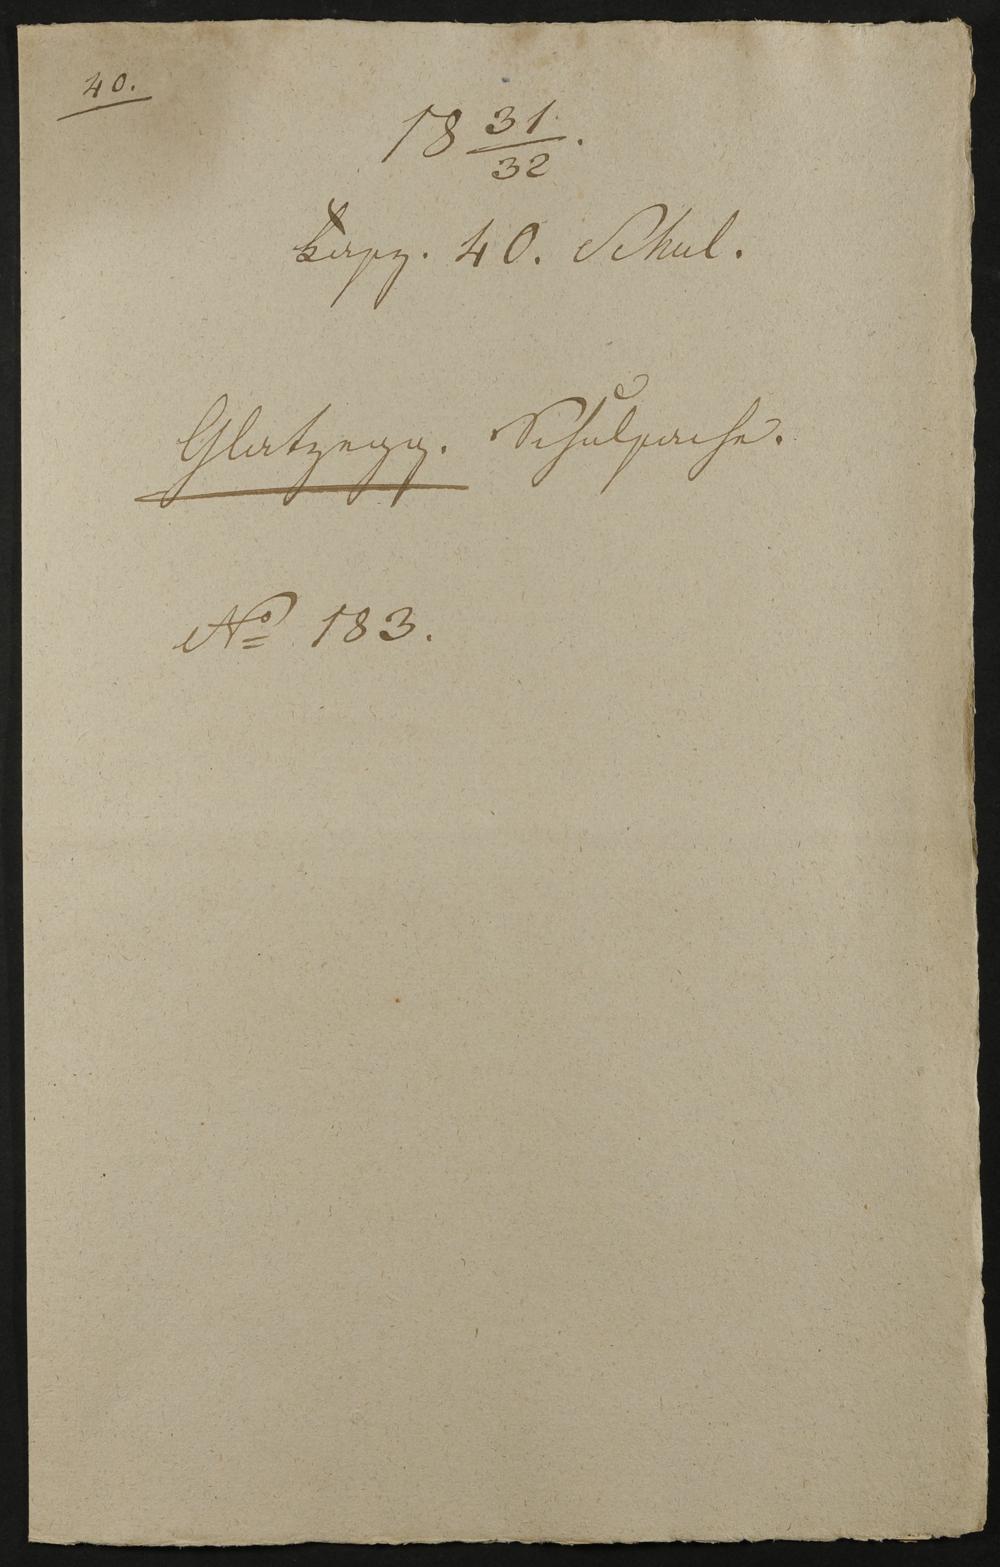 40.
18 31/32.
Kapz. 40. Schul.
Glatzegg. Schulsache.
No 183.